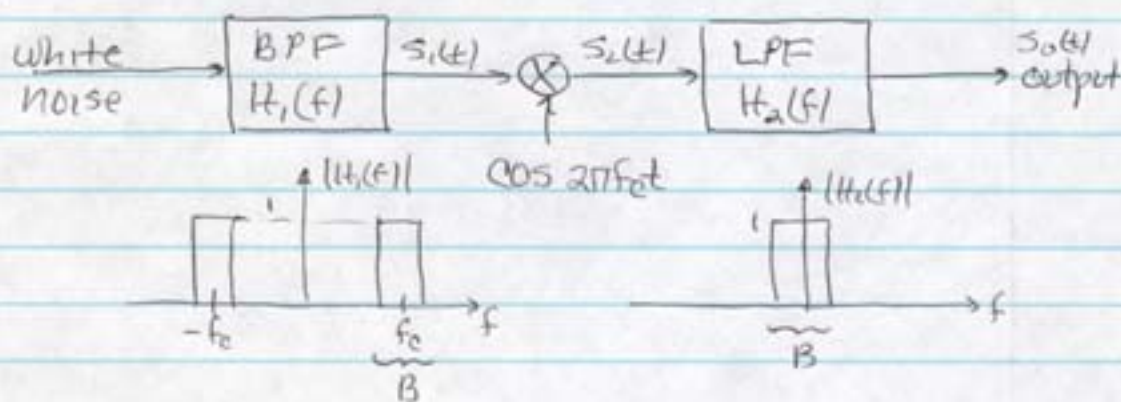 white noise
BPF
H₁(f)
S₁(t)
S₂(t)
LPF
H₂(f)
S₀(t)
output
cos 2πf꜀t
|H₁(f)|
1
-f꜀
f꜀
f
B
|H₂(f)|
1
f
B